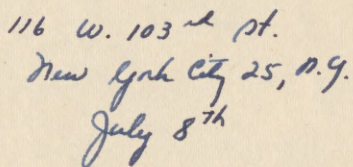 116 W. 103rd St.
New York City 25, N.Y.
July 8th